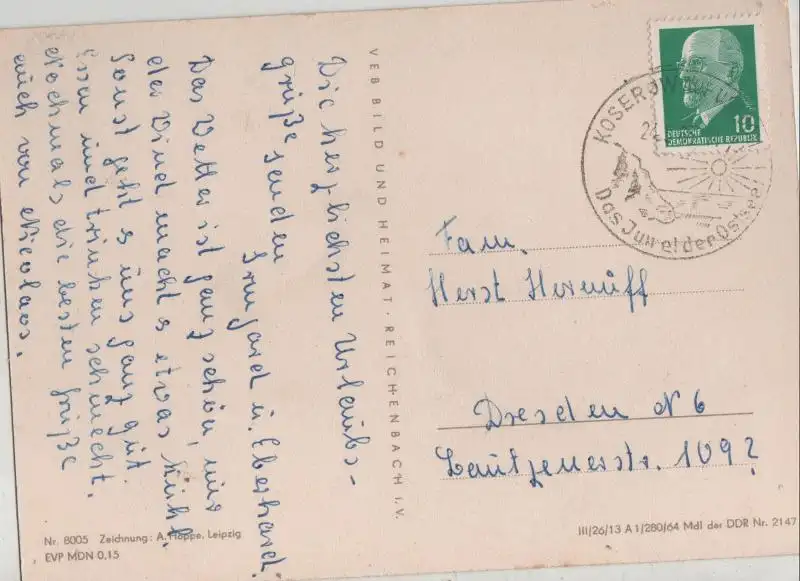 Die herzlichsten Urlaubs-
grüße senden
Irmgard u. Eberhard.
Das Wetter ist ganz schön, nur
der Wind macht's etwas kühl.
Sonst geht's uns ganz gut.
Essen und trinken schmeckt.
Nochmals die besten Grüße
auch von Nicolaos.
VEB BILD UND HEIMAT · REICHENBACH I. V.
KOSEROW
Das Juwel der Ostsee
10
DEUTSCHE
DEMOKRATISCHE REPUBLIK
Fam.
Horst
Dresden N 6
109
Nr. 8005 Zeichnung: A. Hoppe, Leipzig
EVP MDN 0,15
III/26/13 A 1/280/64 MdI der DDR Nr. 2147